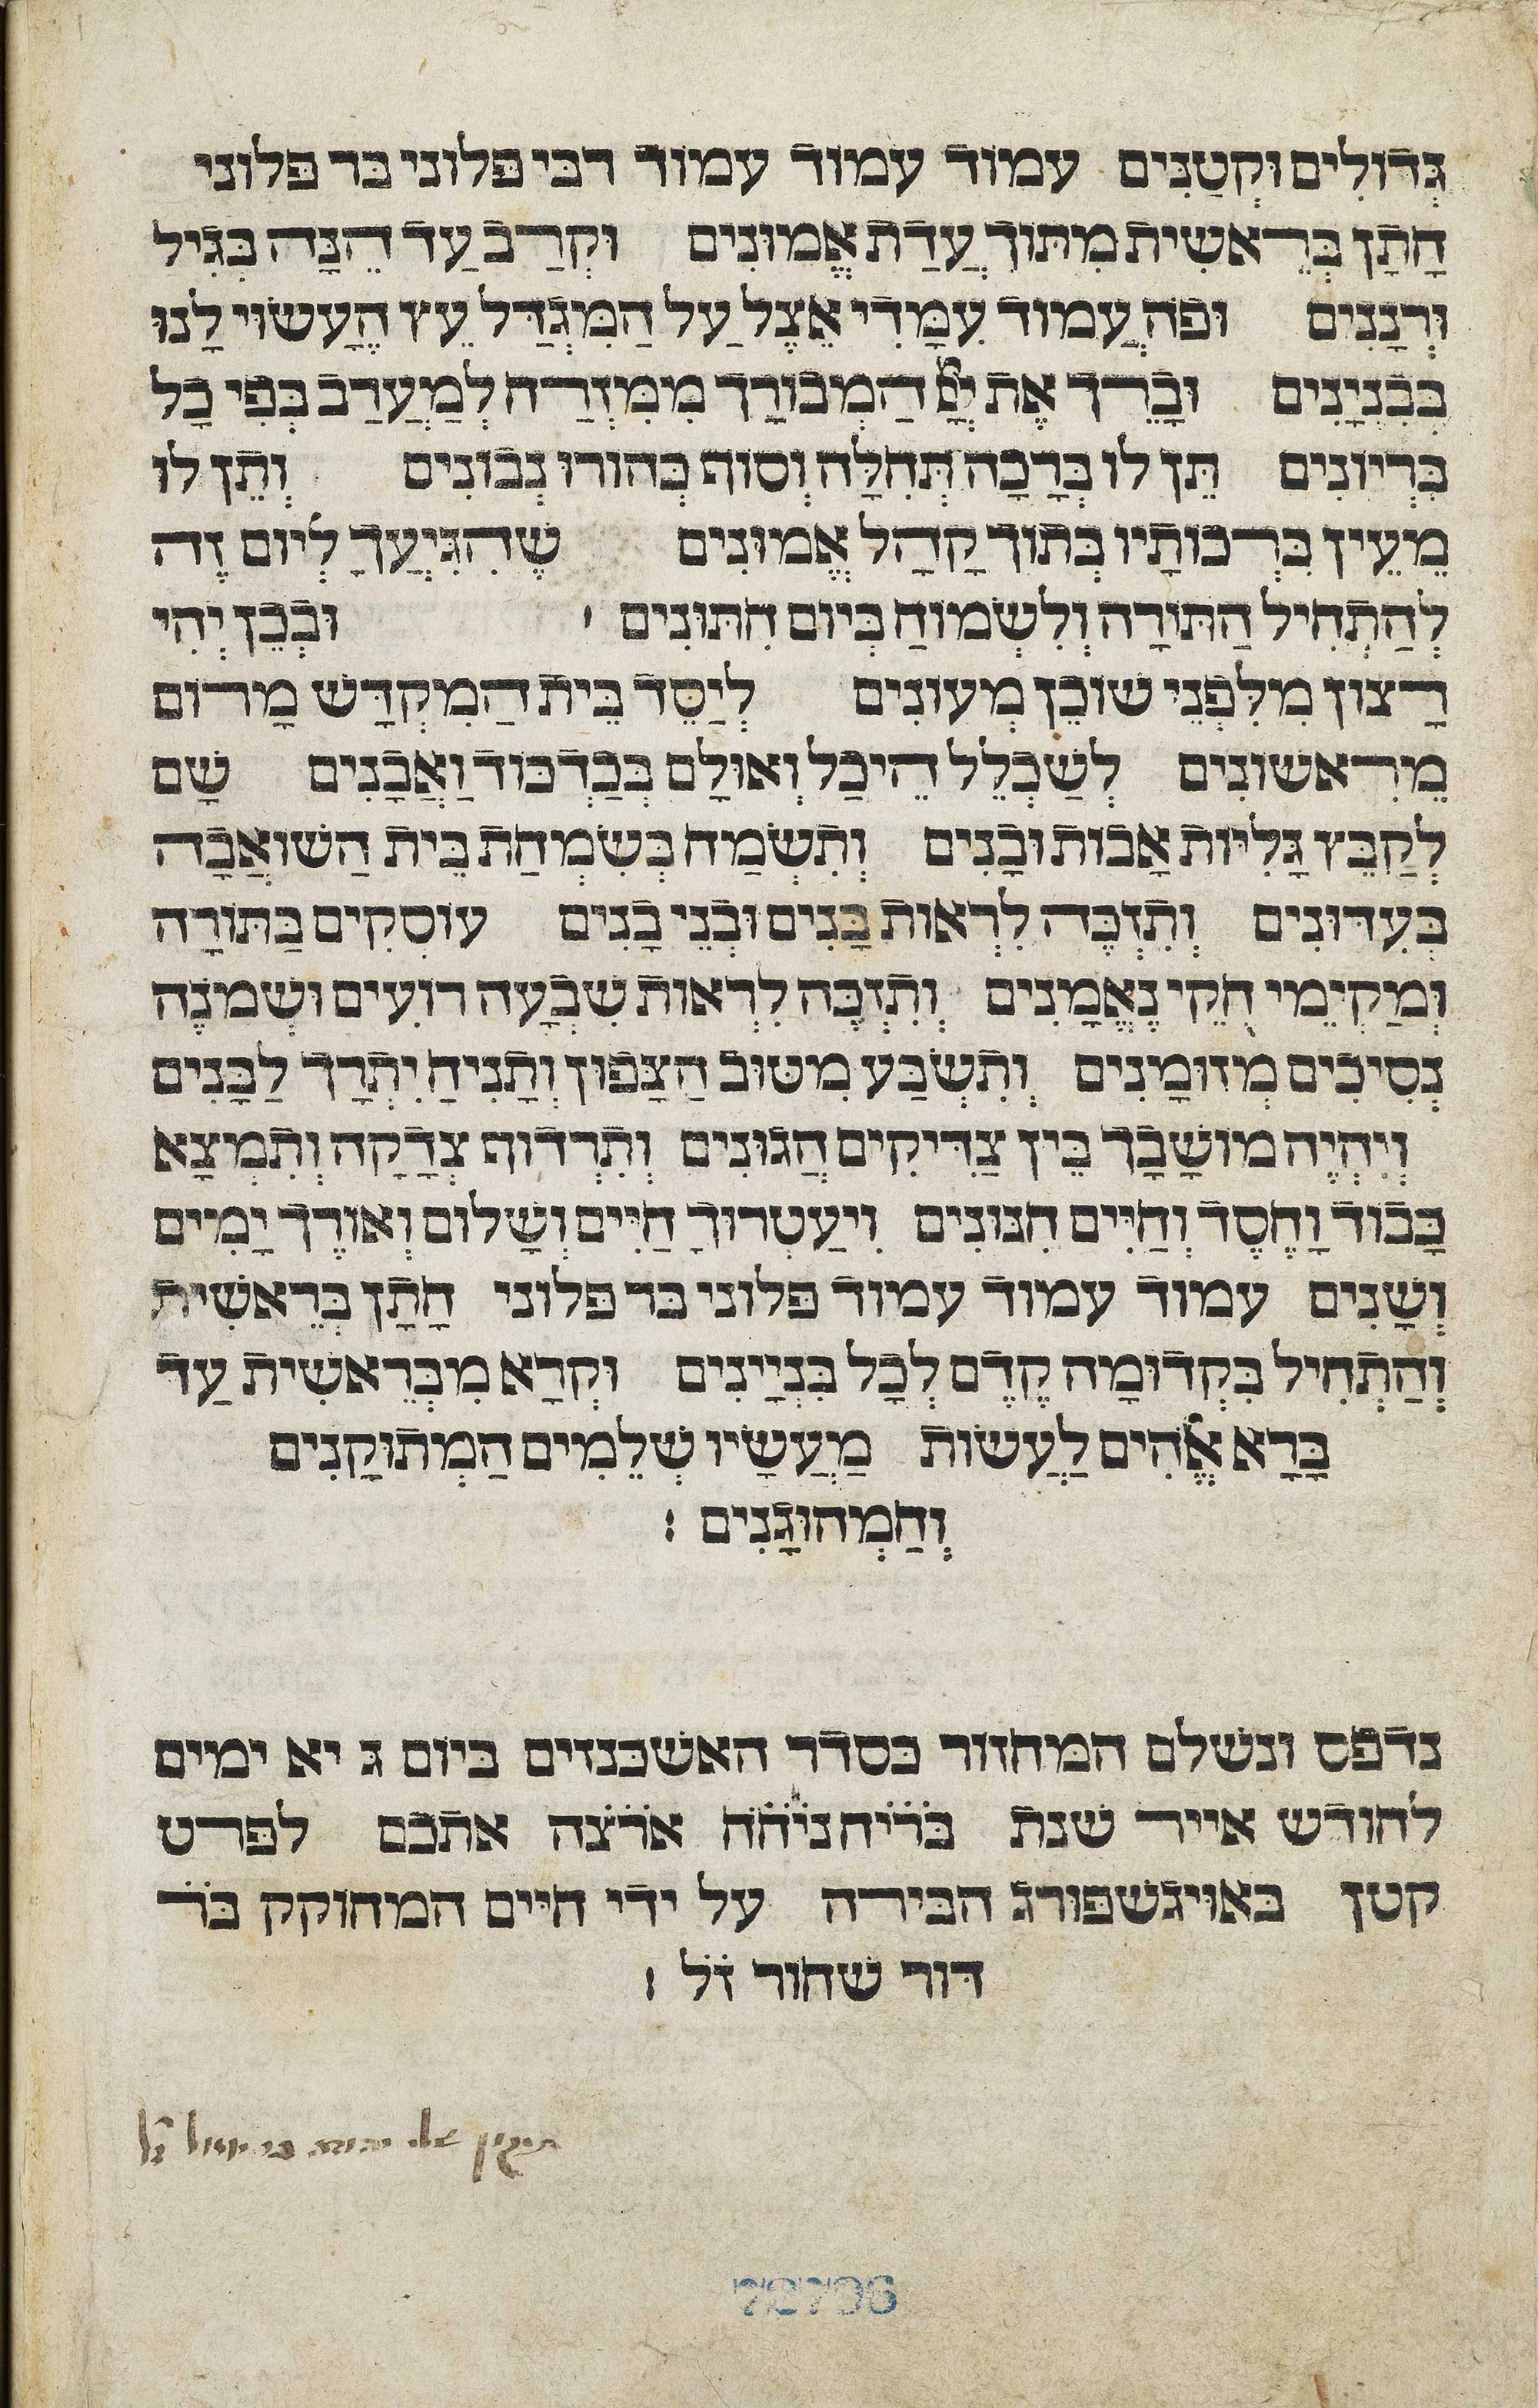 גְּדוֹלִים וּקְטַנִּים עמוד עמוד עמוד רבי פלוני בר פלוני
חָתָן בְּרֵאשִׁית מִתּוֹךְ עֲדַת אֱמוּנִים וּקְרַב עַד הֵנָּה בְּגִיל
וּרְנָנִים וּפֹה עֲמוֹד עִמָּדִי אֵצֶל עַל הַמִּגְדַּל עֵץ הֶעָשׂוּי לָנוּ
בְּבִנְיָנִים וּבָרֵךְ אֶת יְיָ הַמְבוֹרָךְ מִמִּזְרַח לְמַעֲרָב בְּפִי כָל
בִּרְיוֹנִים תֵּן לוֹ בְּרָכָה תְּחִלָּה וְסוֹף כְּהוֹרוּ נְבוֹנִים וְתֵן לוֹ
מֵעֵין בִּרְכוֹתָיו בְּתוֹךְ קָהָל אֱמוּנִים שֶׁהִגִּיעֲךָ לְיוֹם זֶה
לְהַתְחִיל הַתּוֹרָה וְלִשְׂמוֹחַ כְּיוֹם חִתּוּנִים וּבְכֵן יְהִי
רָצוֹן מִלִּפְנֵי שׁוֹכֵן מְעוֹנִים לְיַסֵּד בֵּית הַמִקְדָּשׁ מָרוֹם
מֵרִאשׁוֹנִים לְשַׁכְלֵל הֵיכַל וְאוּלָם בְּכַדְכּוֹד וַאֲבָנִים שָׁם
לְקַבֵּץ גָּלִיּוֹת אָבוֹת וּבָנִים וְתִשְׂמַח כְּשִׂמְחַת בֵּית הַשּׁוֹאֲבָה
בְּעִדּוּנִים וְתִזְכֶּה לִרְאוֹת בָּנִים וּבְנֵי בָנִים עוֹסְקִים בַּתּוֹרָה
וּמְקַיְּמֵי חֻקֵּי נֶאֱמָנִים וְתִזְכֶּה לִרְאוֹת שִׁבְעָה רוֹעִים וּשְׁמֹנֶה
נְסִיכִים מְזוּמָנִים וְתִשְׂבַּע מִטּוּב הַצָּפוּן וְתָנִיחַ יִתְרָךְ לַבָּנִים
וְיִהְיֶה מוֹשָׁבָךְ בֵּין צַדִּיקִים הֲגוּנִים וְתִרְדּוֹף צְדָקָה וְתִמְצָא
כָּבוֹד וָחֶסֶד וְחַיִּים חִנּוּנִים וִיעַטְּרוּךָ חַיִּים וְשָׁלוֹם וְאוֹרֶךְ יָמִים
וְשָׁנִים עמוד עמוד עמוד פלוני בר פלוני חָתָן בְּרֵאשִׁית
וְהַתְחִיל בִּקְדוּמָה קֶדֶם לְכָל בִּנְיָינִים וּקְרָא מִבְּרֵאשִׁית עַד
בָּרָא אֱלֹהִים לַעֲשׂוֹת מַעֲשָׂיו שְׁלֵמִים הַמְתוּקָנִים
וְהַמְהוּגָנִים :
נדפס ונשלם המחזור כסדר האשכנזים ביום ג יא ימים
לחודש אייר שנת בריח ניחח ארצה אתכם לפרט
קטן באויגשפורג הבירה על ידי חיים המחוקק בר
דוד שחור זל :
72796